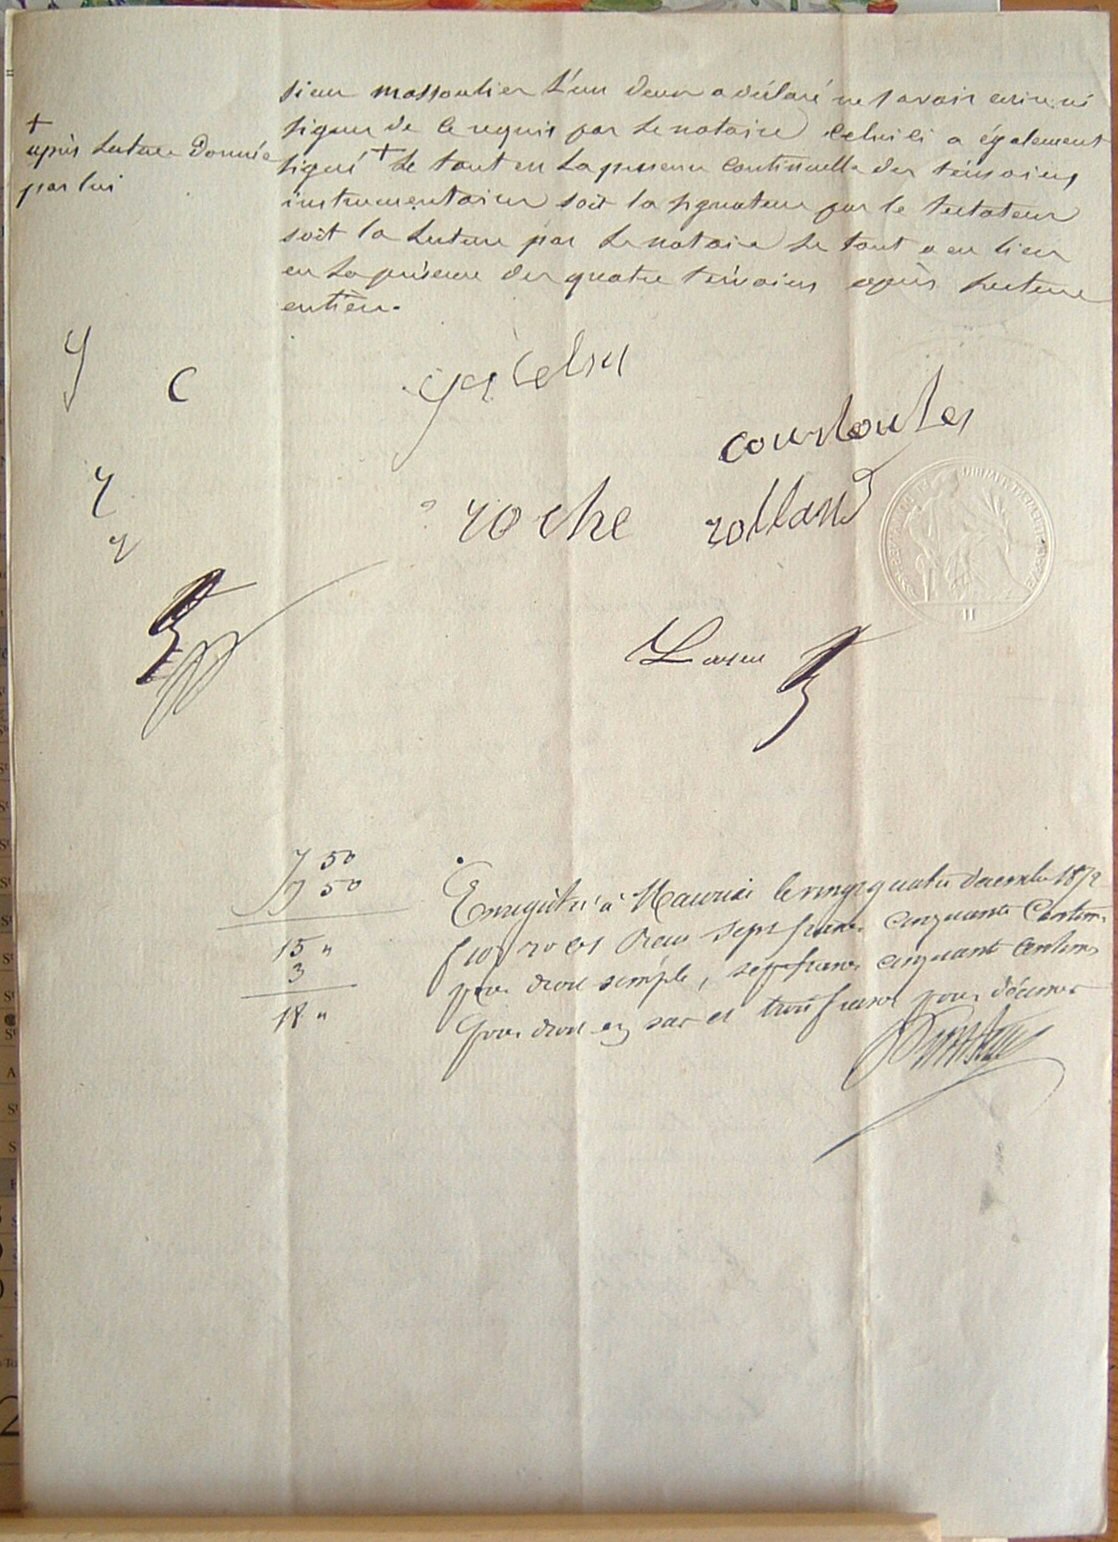 sieur massoulier L'un deux a déclaré ne savoir écrire ni
signer de ce requis par le notaire celui ci a également
signé + Le tout en La présence continuelle des témoins
instrumentaires soit la signature par le testateur
soit la Lecture par Le notaire Le tout a eu lieu
en La présence des quatre témoins après Lecture
entière.
+
après Lecture Donnée
par lui
C
courtoules
roche rolland
7 50
7 50
15 "
3
18 "
Enregistré à Mauriac le vingt quatre Décembre 1872
Reçu sept francs cinquante Centimes
pour droit simple, sept francs cinquante centimes
pour droit en sus et trois francs pour décimes